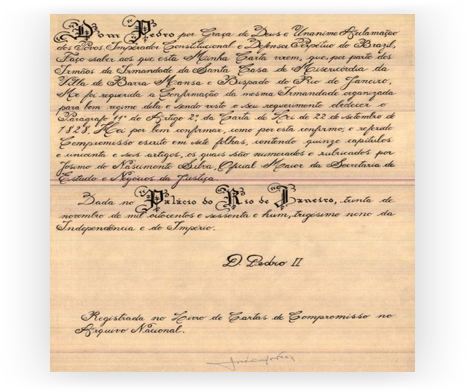 Dom Pedro por Graça de Deus e Unanime Acclamação
dos Povos, Imperador Constitucional e Defensor Perpétuo do Brazil,
Faço saber aos que esta Minha Carta virem, que, por parte dos
Irmãos da Irmandade da Santa Casa de Misericórdia da
Villa de Barra Mansa e Bispado do Rio de Janeiro,
Me foi requerida a Confirmação da mesma Irmandade organizada
para bom regime dela e sendo visto o seu requerimento obedecer o
Paragrafo 11º do Artigo 2º, da Carta de Lei de 22 de setembro de
1828, Hei por bem confirmar, como por esta confirmo, o referido
Compromisso escrito em sete folhas, contendo quinze capitulos
e cincoenta e seis artigos, os quais são numerados e rubricados por
Josino do Nascimento Silva, Oficial Maior da Secretaria de
Estado e Negócios da Justiça.
Dada no Palácio do Rio de Janeiro, trinta de
novembro de mil oitocentos e sessenta e hum, trigesimo nono da
Independência e do Imperio.
D. Pedro II
Registrada no Livro de Cartas de Compromisso no
Arquivo Nacional.